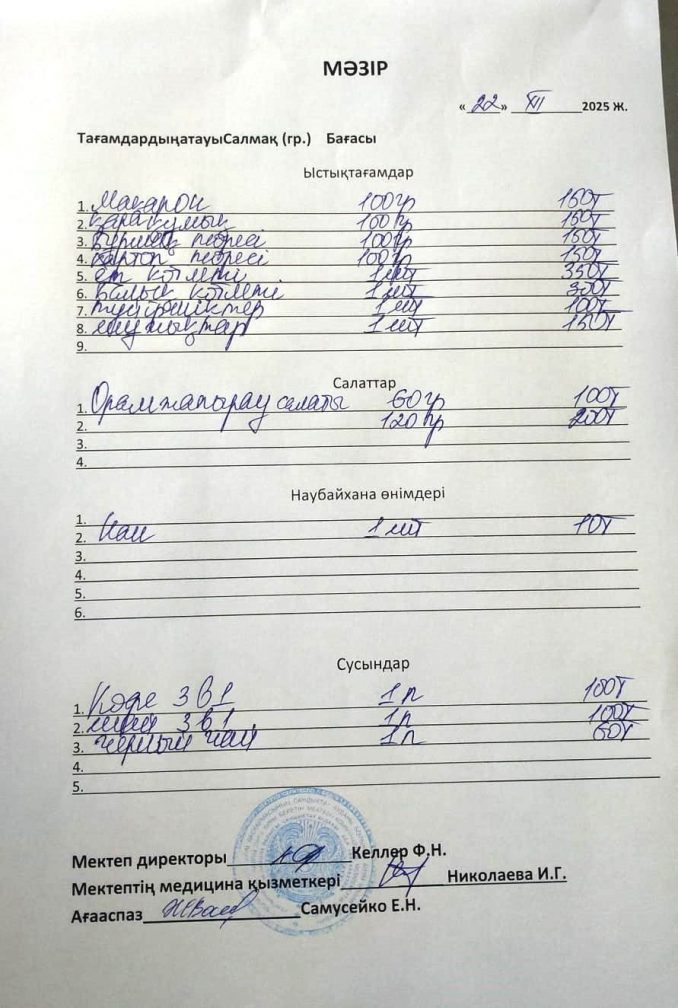 МӘЗІР
«22» XII 2025 Ж.
ТағамдардыңатауыСалмақ (гр.) Бағасы
Ыстықтағамдар
1. Макарон 100гр 150т
2. қарақұмық 100гр 150т
3. бұршақ пюресі 100гр 150т
4. картоп пюресі 100гр 150т
5. ет котлеті 1 шт 350т
6. балық котлеті 1 шт 300т
7. түйіршіктер 1 шт 100т
8. шұжықтар 1 шт 150т
9.
Салаттар
1. Орамжапырақ салаты 60гр 100т
2. 120гр 200т
3.
4.
Наубайхана өнімдері
1.
2. Нан 1 шт 10т
3.
4.
5.
6.
Сусындар
1. Кофе 3в1 1п 100т
2. шай 3в1 1п 100т
3. черный чай 1п 60т
4.
5.
Мектеп директоры Келлер Ф.Н.
Мектептің медицина қызметкері Николаева И.Г.
Ағааспаз Самусейко Е.Н.